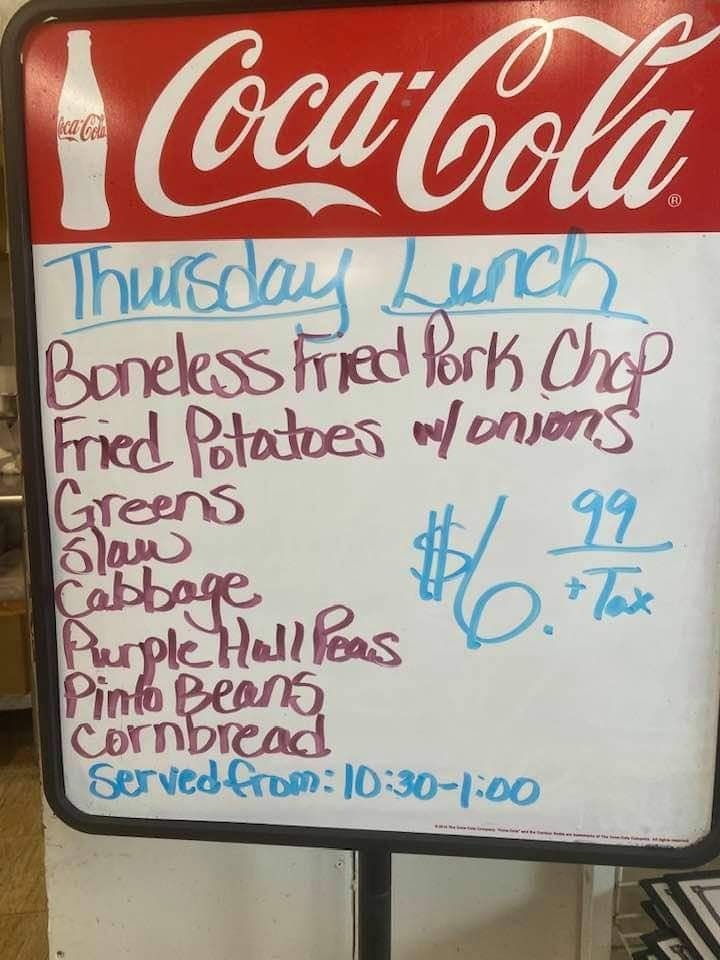 Coca-Cola
Coca-Cola ®
Thursday Lunch
Boneless Fried Pork Chop
Fried Potatoes w/ onions
Greens
Slaw
Cabbage
Purple Hull Peas
Pinto Beans
Cornbread
$6.99
+ Tax
Served from: 10:30-1:00